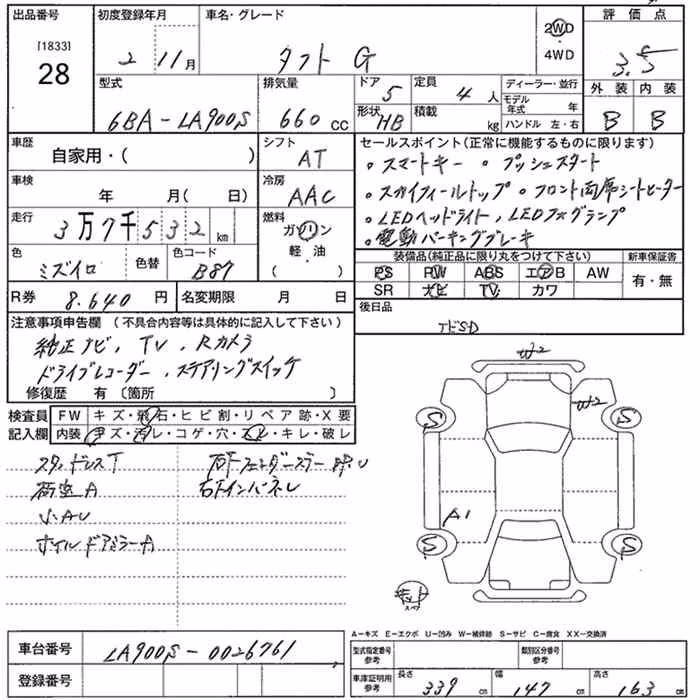 出品番号 初度登録年月 車名・グレード 2WD・4WD 評価点
[1833] 28 2年11月 タフト G 3.5
型式 6BA-LA900S 排気量 660cc ドア 5 定員 4人 ディーラー・並行 外装 内装
形状 HB 積載 kg モデル年式 年 ハンドル 左・右 B B
車歴 自家用・( ) シフト AT
セールスポイント(正常に機能するものに限ります)
・スマートキー ・プッシュスタート
・スカイフィールトップ ・フロント両席シートヒーター
・LEDヘッドライト, LEDフォグランプ
・電動パーキングブレーキ
車検 年 月( 日) 冷房 AAC
走行 3万7千532km 燃料 ガソリン 軽・油 ( )
色 ミズイロ 色替 色コード B87
装備品(純正品に限り丸をつけて下さい) 新車保証書
PS PW ABS エアB AW 有・無
SR ナビ TV カワ
R券 8.640円 名変期限 月 日
後日品 T
注意事項申告欄 (不具合内容等は具体的に記入して下さい)
純正ナビ, TV, Rカメラ
ドライブレコーダー, ステアリングスイッチ
修復歴 有 〔箇所 〕
検査員記入欄 FW キズ・飛石・ヒビ割・リペア跡・X要
内装 キズ・汚レ・コゲ・穴・スレ・キレ・破レ
スタッドレスT 右Fフェンダーステー
A 右Fインパネレ
小AU
ホイル ドアミラーA
W2
W2
S S
A1
S S
キット
スペア
A-キズ E-エクボ U-凹み W-補修跡 S-サビ C-腐食 XX-交換済
車台番号 LA900S-0026761
型式指定番号 参考 類別区分番号 参考
登録番号
車庫証明用 参考 長さ 339cm 幅 147cm 高さ 163cm